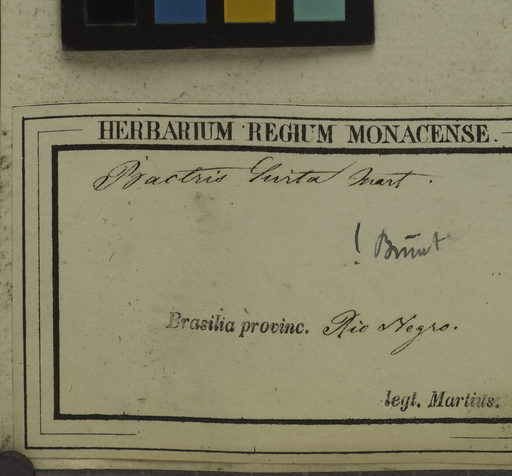 HERBARIUM REGIUM MONACENSE.
Bactris hirta Mart.
! Burret
Brasilia provinc. Rio Negro.
legt. Martius.